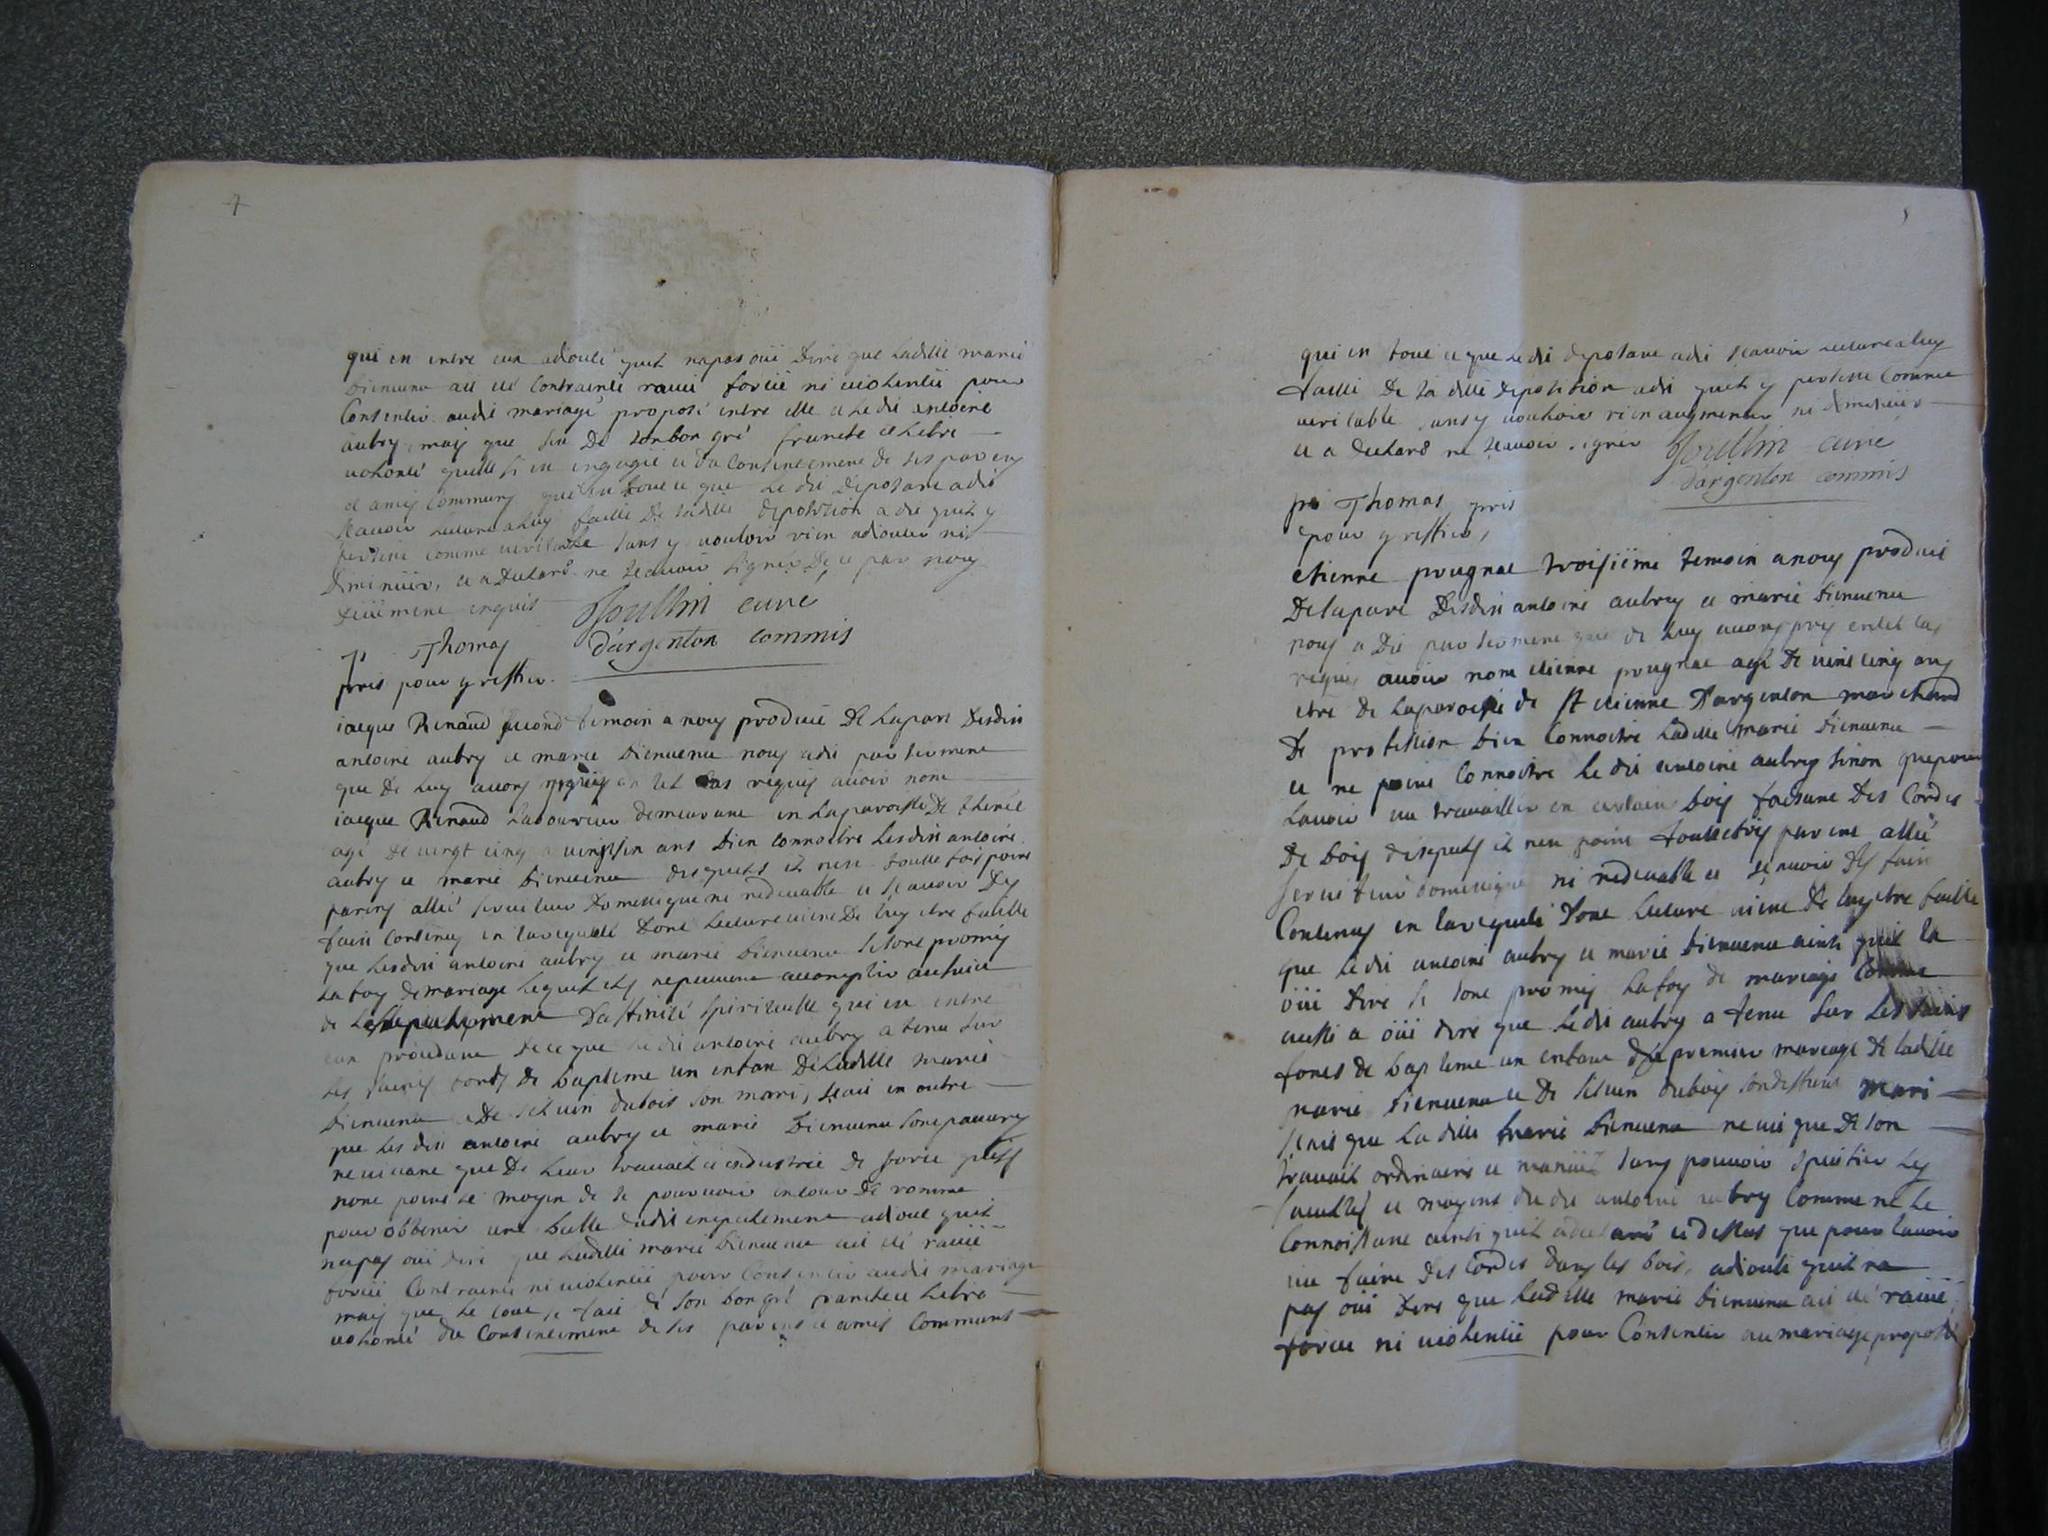 7
qui en entre eux adiouté quil napas oüi dire que ladille marie
bienuenu ait été Contrainte rauie forcée ni uiolentée pour
Consentir audit mariage proposé entre elle et le dit antoine
aubry, mais que sest de son bon gré franche et libre
uolonté quelle sest engagée et du Consentement de ses parens
et amis Communs qui est tout ce que le dit deposant a dit
scauoir lecture a luy faitte de sadille deposition a dit quil y
persiste comme ueritable sans y uouloir rien adiouter ni
diminüer, et a declaré ne scauoir signer de ce par nous
deüement enquis Joullin curé
p Thomas d'argenton commis
pris pour greffier.
iacque Renaud second temoin a nous produit de la part desdits
antoine aubry et marie bienuenu nous adit par serment
que de luy auons en tel cas requis auoir nom
iacque Renaud Laboureur demeurant en la paroisse de
agé de uingt cinq a uingt six ans bien connoitre lesdits antoine
aubry et marie bienuenu desquels il nest toutte fois point
parens allié seruiteur domestique ni redeuable et scauoir les
faits contenus en la requeste dont lecture uient de luy etre faitte
que lesdits antoine aubry et marie bienuenu se sont promis
la foy de mariage lequel ils ne peuuent accomplir au suiet
de lempechement daffinité spirituelle qui est entre
eux procedant de ce que le dit antoine aubry a tenu sur
les saints fonds de bapteme un enfant de ladille marie
bienuenu et de siluin dubois son mari, scait en outre
que les dits antoine aubry et marie bienuenu sont pauures
ne uiuant que de leur trauail et industrie de sorte quils
nont point le moyen de se pouruoir en cour de romme
pour obtenir une bulle dudit empechement adioute quil
napas oui dire que ladille marie bienuenu ait été rauie
forcée Contrainte ni uiolentée pour Consentir audit mariage
mais que le tout se fait de son bon gré franche et libre
uolonté du Consentement de ses parens et amis Communs
qui est tout ce que le dit deposant adit scauoir lecture a luy
faitte de sa ditte deposition adit quil y persiste Comme
ueritable sans y uouloir rien augmenter ni diminuer
et a declaré ne scauoir signer Joullin curé
d'argenton commis
p Thomas pris
pour greffier,
etienne prugnat troisiéme temoin a nous produit
de la part desdits antoine aubry et marie bienuenu
nous a dit par serment que de luy auons pris en tel cas
requis auoir nom etienne prugnat agé de uint cinq ans
etre de la paroisse de st etienne d'argenton marchand
de profession bien Connoitre ladille marie bienuenu
et ne point Connoitre le dit antoine aubry sinon que pour
lauoir uu trauailler en certains bois faisant des Cordes
de bois desquels il nest point touttefois parent allié
seruiteur domestique ni redeuable et scauoir les faits
Contenus en la requeste dont lecture uient de luy etre faitte
que le dit antoine aubry et marie bienuenu ainsi quil la
oüi dire se sont promis la foy de mariage Comme
aussi a oüi dire que le dit aubry a tenu sur les saints
fonts de bapteme un enfant du premier mariage de ladille
marie bienuenu et de siluin dubois son deffunt mari
scait que la ditte marie bienuenu ne uit que de son
trauail ordinaire et manuel sans pouuoir specifier les
facultés et moyens du dit antoine aubry Comme ne le
Connoissant ainsi quil a declaré cy dessus que pour lauoir
uu faire des Cordes dans les bois, adioute quil na
pas oüi dire que ladille marie bienuenu ait été rauie,
forcée ni uiolentée pour Consentir au mariage proposé